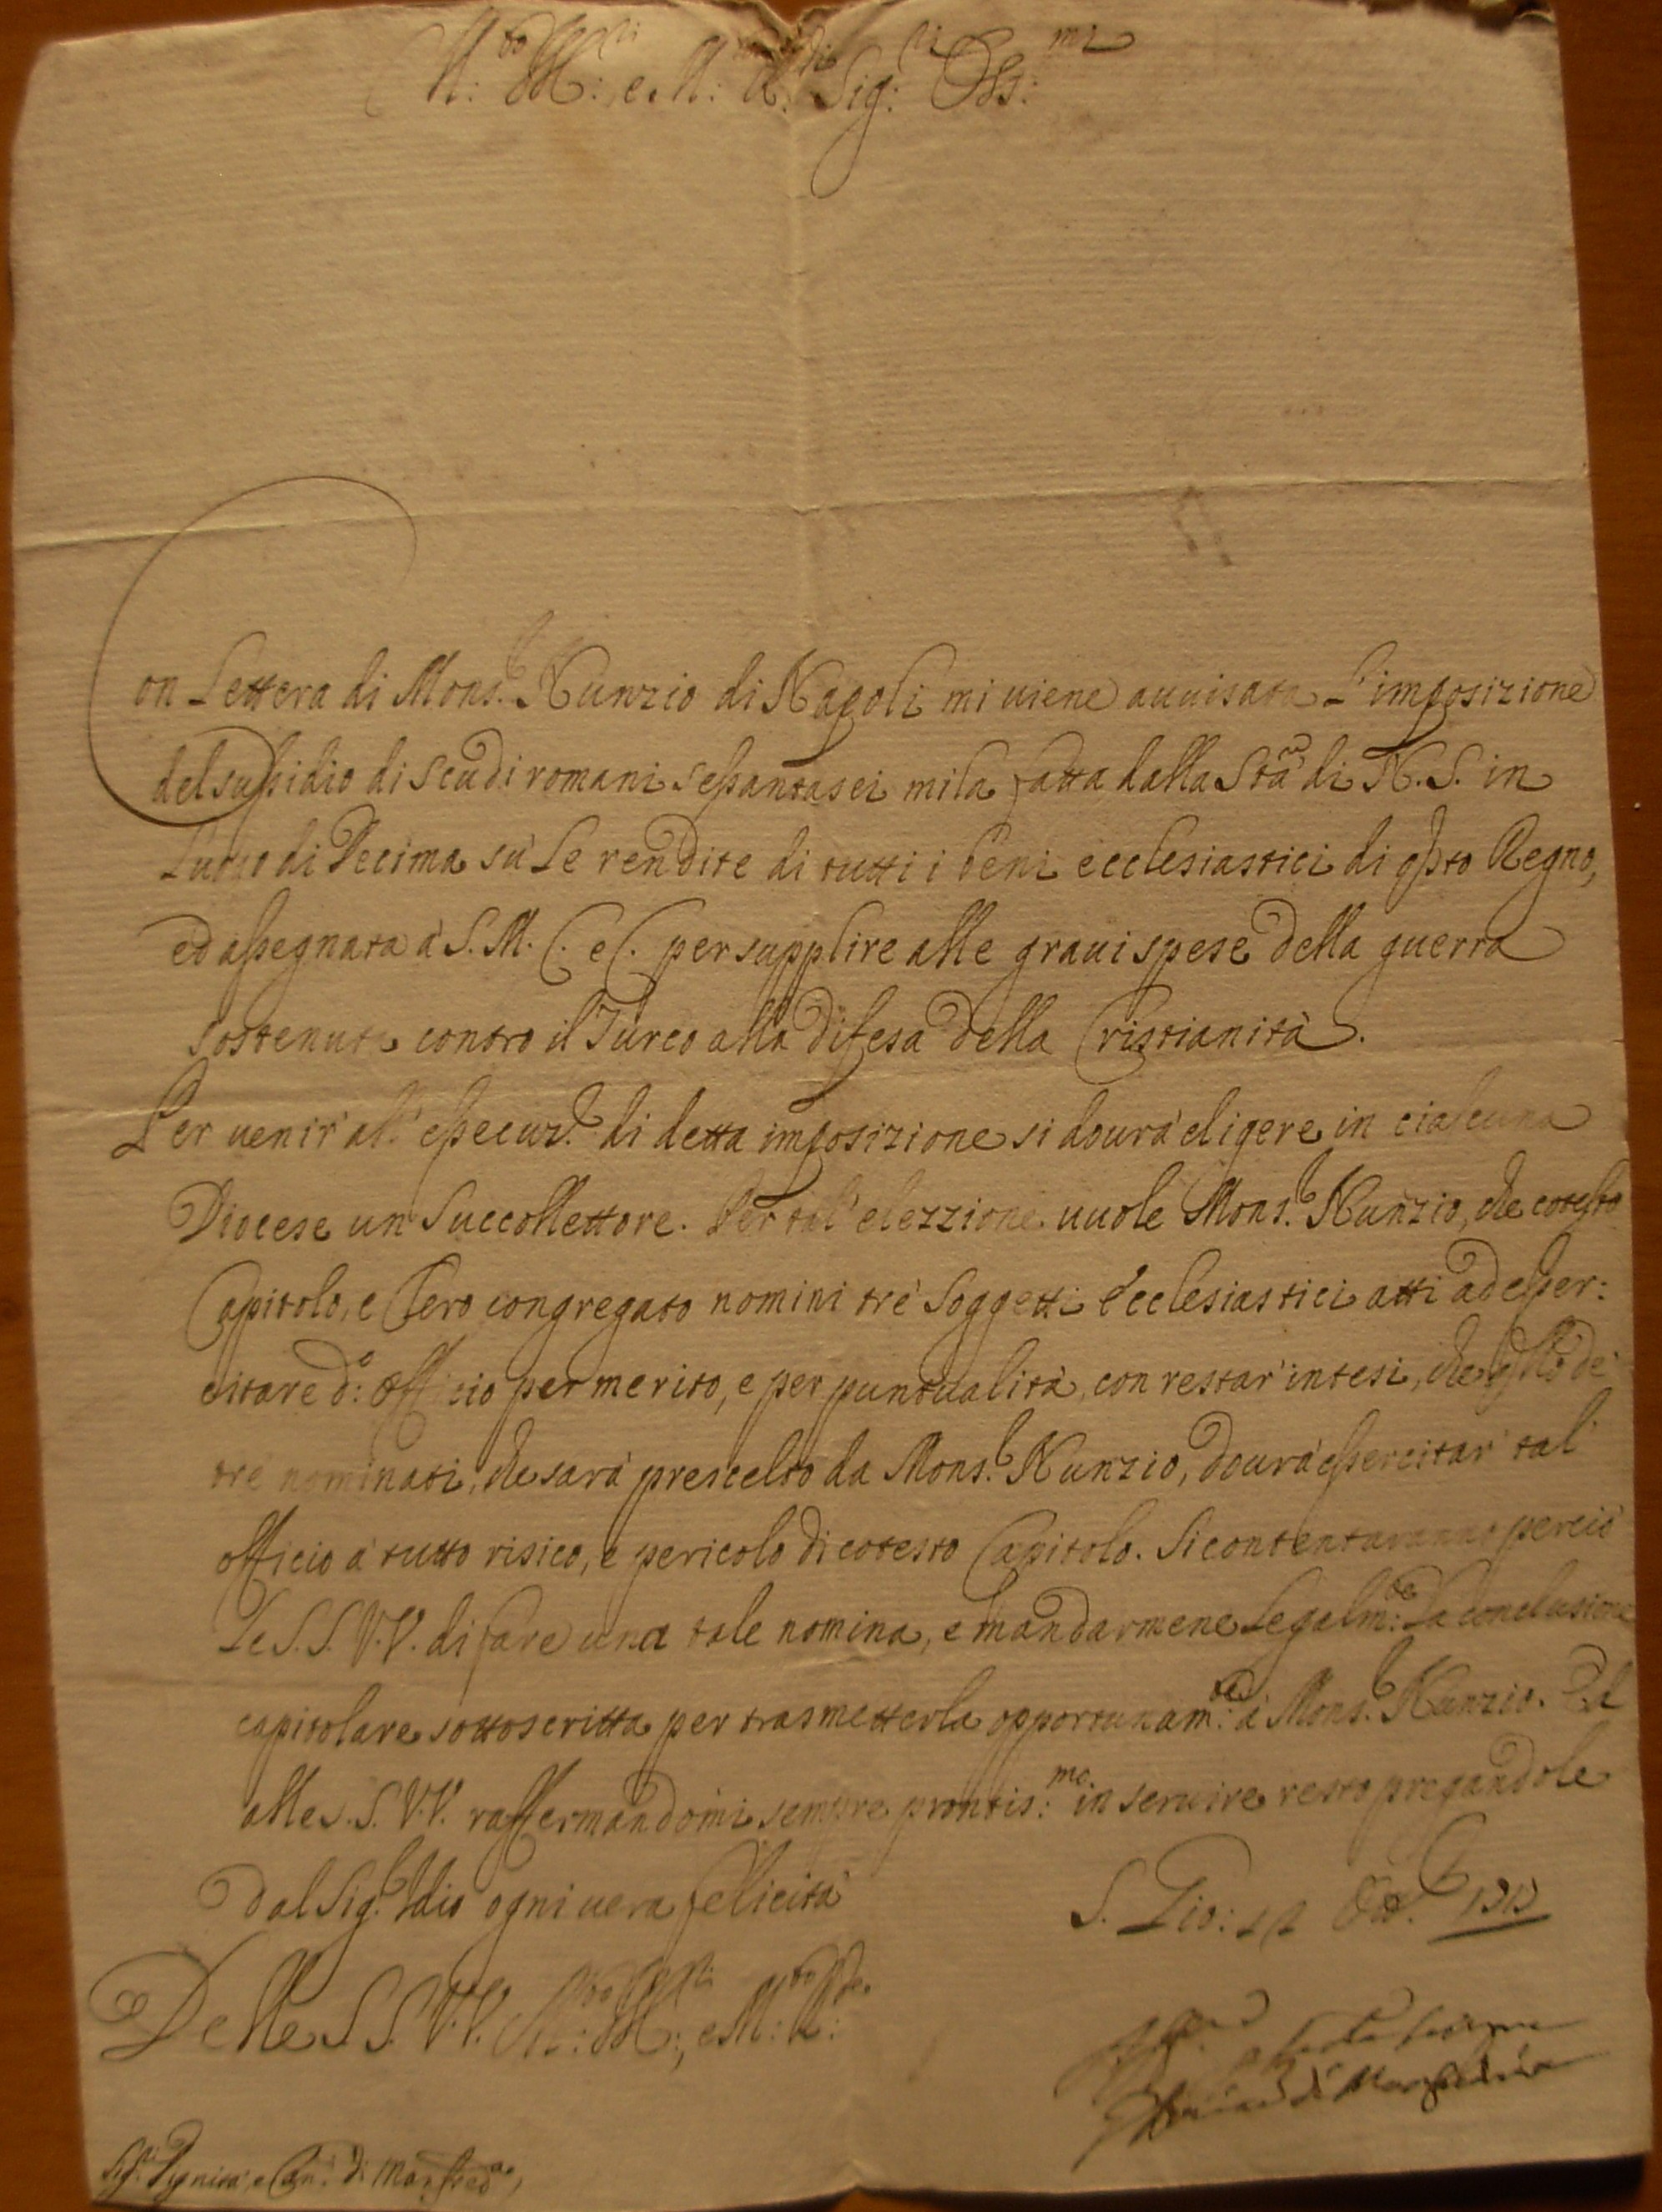 M:to Ill:ri, e M: R:di Sig:ri Oss:mi
Con Lettera di Mons.r Nunzio di Napoli mi uiene auuisata l'imposizione
del sussidio di scudi romani sessantasei mila fatta dalla Stà di N.S. in
luogo di Decima sù le rendite di tutti i beni ecclesiastici di qsto Regno,
ed assegnata à S.M. C. e C. per supplire alle graui spese della guerra
sostenuta contro il Turco alla difesa della Cristianità.
Per uenir' all' essecuz.e di detta imposizione si dourà eligere in ciascuna
Diocese un Succollettore. Per tal' elezzione uuole Mons.r Nunzio, che cotesto
Capitolo, e Clero congregato nomini trè Soggetti Ecclesiastici atti ad esser:
citare d:o officio per merito, e per puntualità, con restar' intesi, che qllo de'
trè nominati, che sarà prescelto da Mons.r Nunzio, dourà essercitar' tal'
officio à tutto risico, e pericolo di cotesto Capitolo. Si contentaranno perciò
Le S.S. V.V. di fare una tale nomina, e mandarmene legalm:te la conclusione
capitolare sottoscritta per trasmetterla opportunam:te à Mons.r Nunzio. Ed
alle S.S. V.V. raffermandomi sempre prontis:mo in seruire resto pregandole
dal Sig.r Idio ogni uera felicità S. Gio: Ott.e
Delle S.S. V.V. M:to Ill:ri, e M:to R:de
Sig.ri Dignità, e Can.ci di Manfred.a